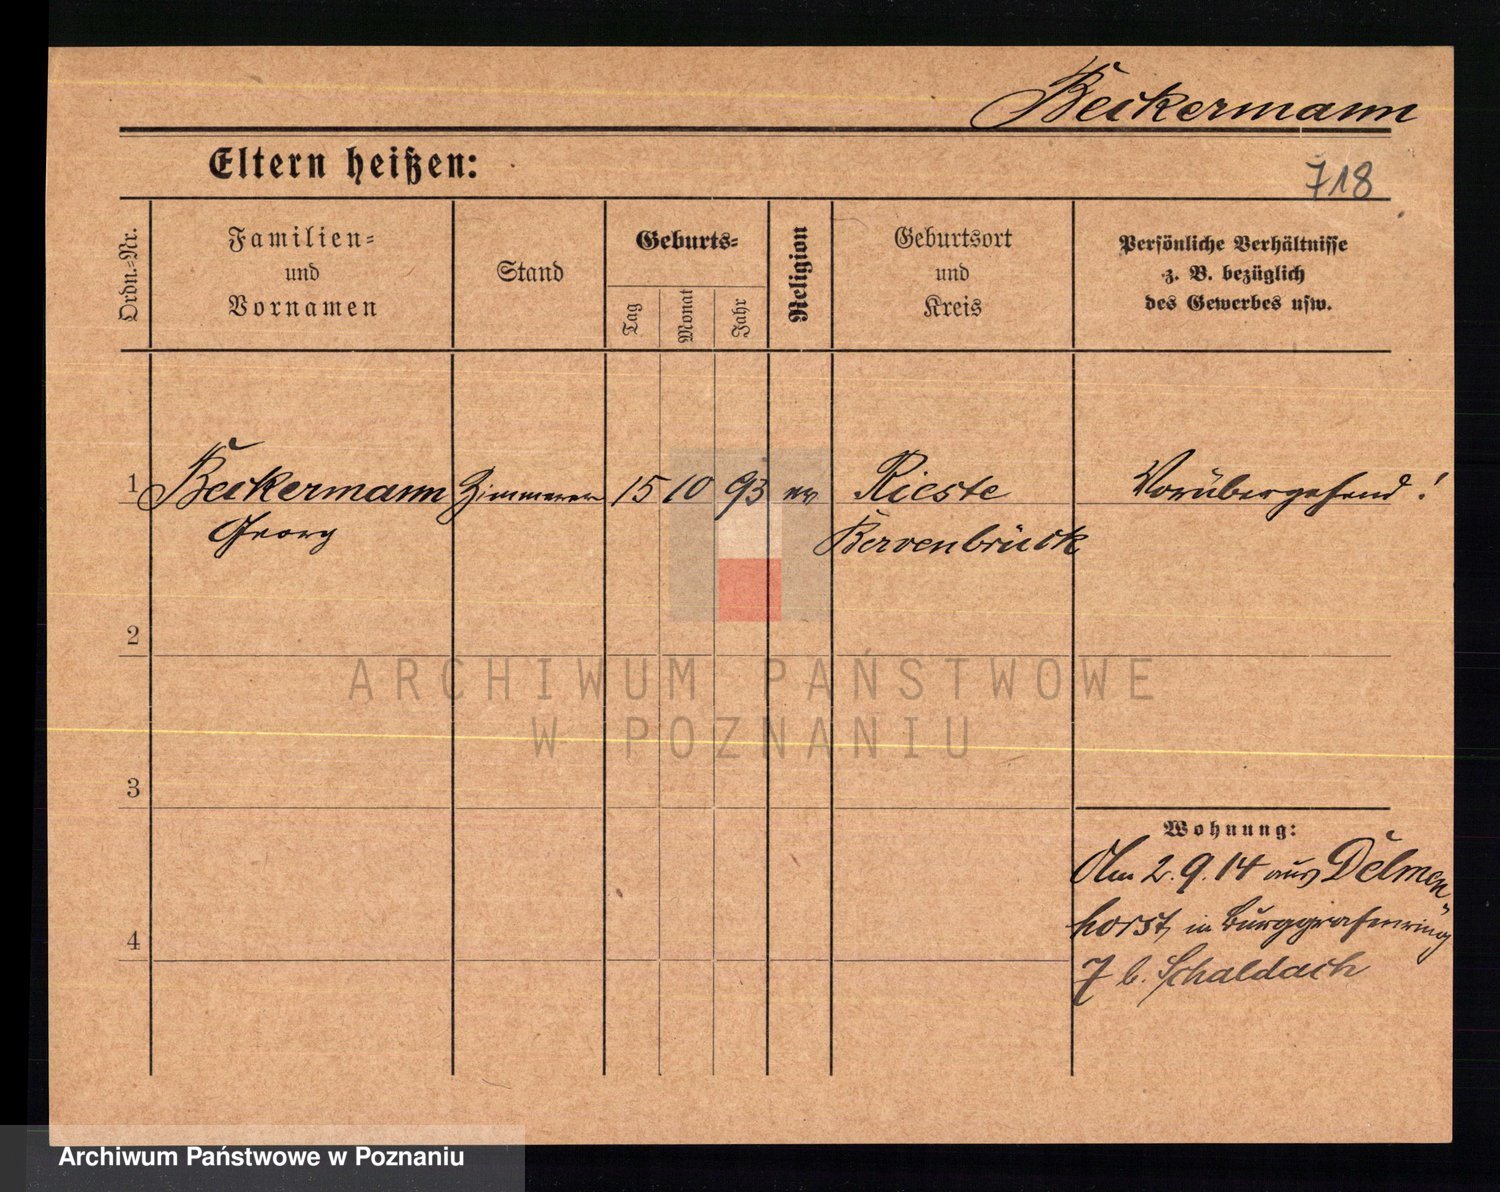 Beckermann
Eltern heißen:
718
Ordn.-Nr.
Familien-
und
Vornamen
Stand
Geburts-
Tag
Monat
Jahr
Religion
Geburtsort
und
Kreis
Persönliche Verhältnisse
z. B. bezüglich
des Gewerbes usw.
1 Beckermann Zimmerer 15 10 93 ev Rieste Vorübergehend!
Georg Bersenbrück
2
ARCHIWUM PAŃSTWOWE
W POZNANIU
3
Wohnung:
Am 2.9.14 aus Delmen-
horst, in Burggrafenring
4
7 b. Schaldach
Archiwum Państwowe w Poznaniu